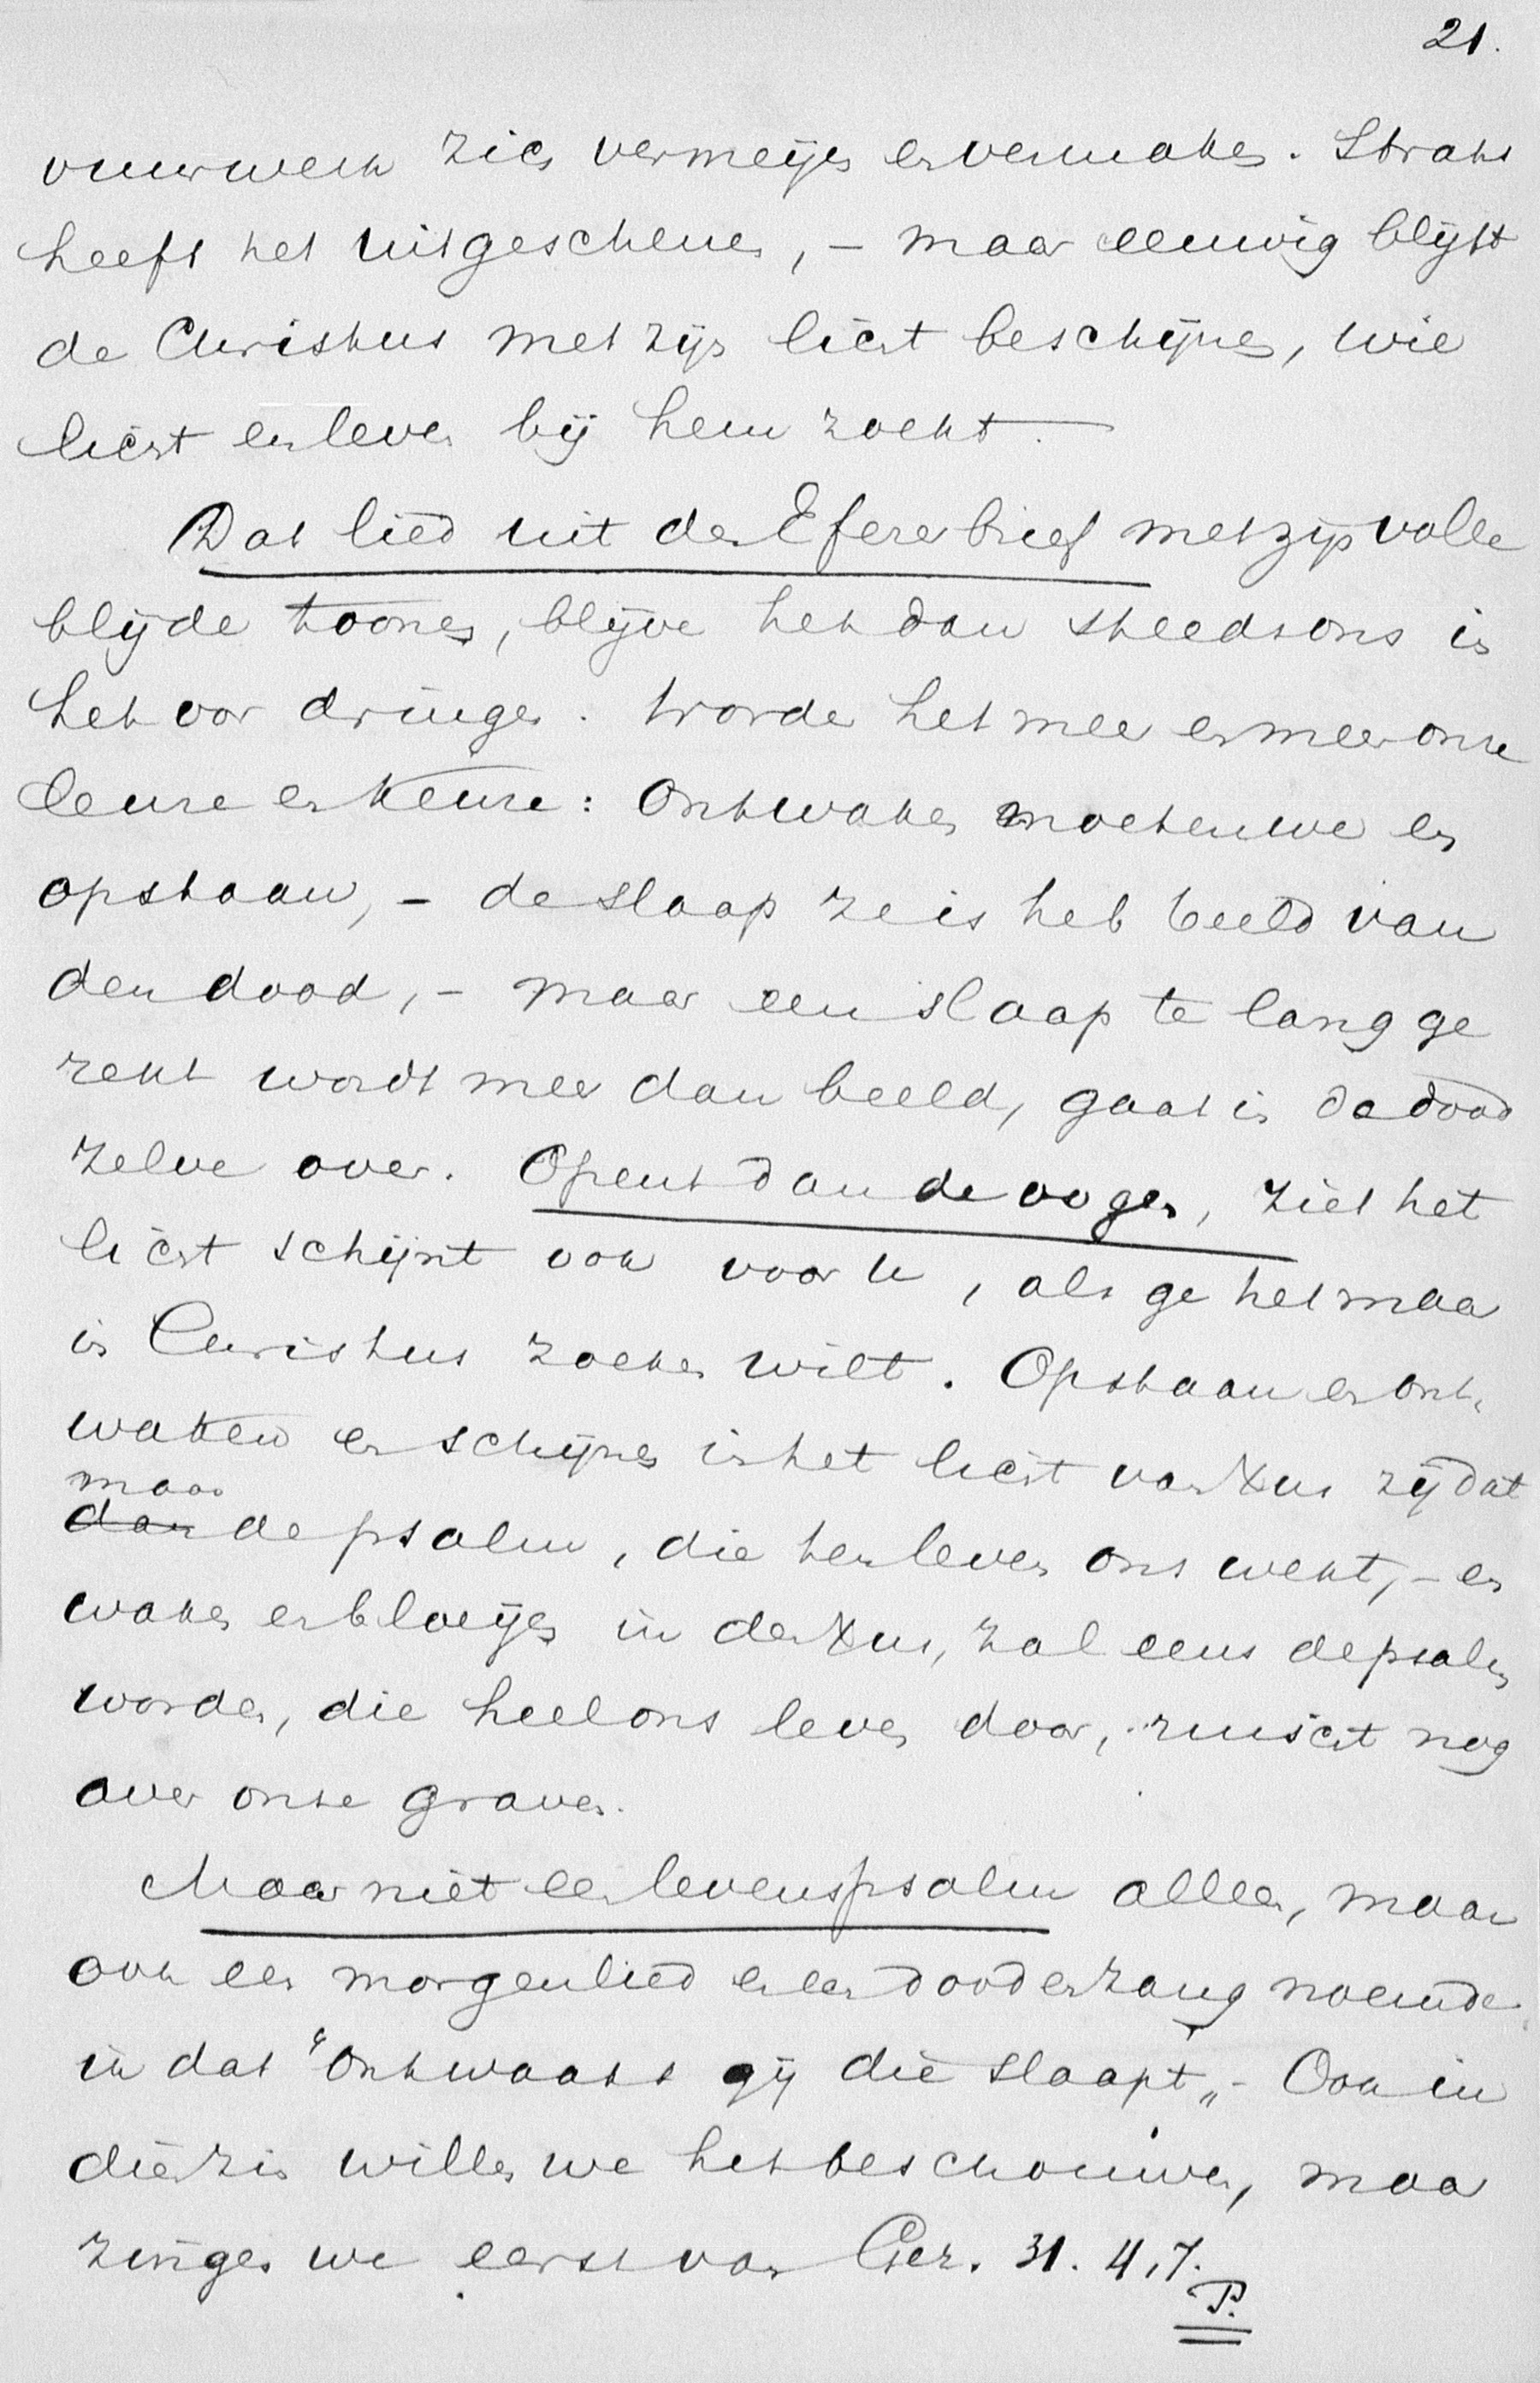 21.
vuurwerk zich vermeijen en vermaken. Straks
heeft het uitgeschenen, – maar eeuwig blijft
de Christus met zijn licht beschijnen, wie
licht en leven bij hem zoekt.
Dat lied uit den Efeserbrief met zijn volle
blijde toonen, blijve het dan steeds ons in
het oor dringen. Worde het meer en meer onze
leuze en keuze: Ontwaken moeten we en
opstaan, – de slaap ze is het beeld van
den dood, – maar een slaap te lang ge
rekt wordt meer dan beeld, gaat in de dood
zelve over. Opent dan de oogen, ziet het
licht schijnt ook voor u, als ge het maar
in Christus zoeken wilt. Opstaan en ont-
waken en schijnen in het licht van Xus zij dat
maar
dan de psalm, die ten leven ons wekt, – en
waken en bloeijen in den Xus, zal eens de psalm
worden, die heel ons leven door, ruischt nog
over onze graven.
Maar niet een levenspsalm alleen, maar
ook een morgenlied en een dooderzang noemde
ik dat "Ontwaakt gij die slaapt„ – Ook in
dien zin willen we het beschouwen, maar
zingen we eerst van Gez. 31. 4, 7.
P.